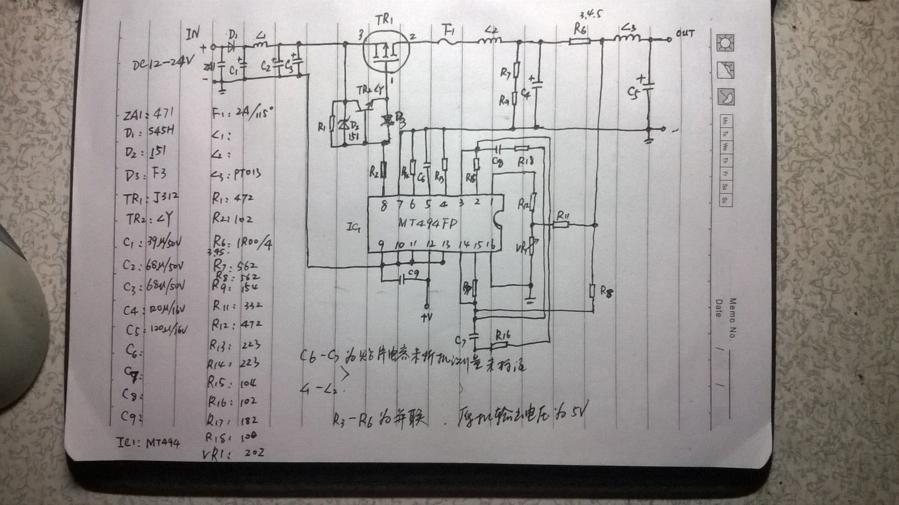 IN
TR1
F1
L2
3.4.5
R6
L3
OUT
D1
L1
3
2
1
+
DC12-24V
-
C1
C2
C3
TR2 LY
R1
D2
151
D3
R7
C4
C5
R2
C6
C8
R18
R12
R11
VR1
R8
8 7 6 5 4 3 2 1
IC1
MT494FP
9 10 11 12 13 14 15 16
C9
+V
C7
R16
ZA1: 471
D1: S45H
D2: 151
D3: F3
TR1: J312
TR2: LY
C1: 39μ/50V
C2: 68μ/50V
C3: 68μ/50V
C4: 120μ/16V
C5: 120μ/16V
C6:
C7:
C8:
C9:
IC1: MT494
F1: 2A/115°
L1:
L2:
L3: PT013
R1: 472
R2: 102
R6: 1R00/4
3.4.5.
R7: 562
R8: 562
R9: 154
R11: 332
R12: 472
R13: 223
R14: 223
R15: 104
R16: 102
R17: 182
R18: 100
VR1: 202
C6-C9为贴片电容未拆机测量未标注
L1-L2.
R3-R6为并联. 原机输出电压为5V
Memo No.
Date / /